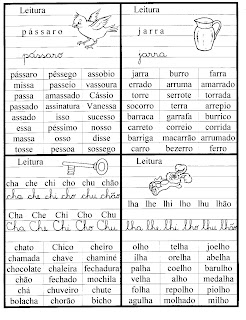 Leitura
pássaro
pássaro
pássaro pêssego assobio
missa passeio vassoura
passa amassado Cássio
passado assinatura Vanessa
assado isso sucesso
essa péssimo nosso
massa osso disse
tosse pessoa sossego
Leitura
jarra
jarra
jarra burro farra
errado arruma amarrado
torre serrote torrada
socorro terra arrepio
barraca garrafa burrico
carreto correio corrida
barriga macarrão arrumado
correr barreto ferro
Leitura
cha che chi cho chu chão
cha che chi cho chu chão
Cha Che Chi Cho Chu
Cha Che Chi Cho Chu
chato Chico cheiro
chamada chave chaminé
chocolate chaleira fechadura
chão fechado mochila
chá chuveiro chute
bolacha chorão bicho
Leitura
lha lhe lhi lho lhu lhão
lha lhe lhi lho lhu lhão
olho telha joelho
ilha orelha abelha
palha coelho barulho
velha alho medalha
folha repolho piolho
agulha molhado milho